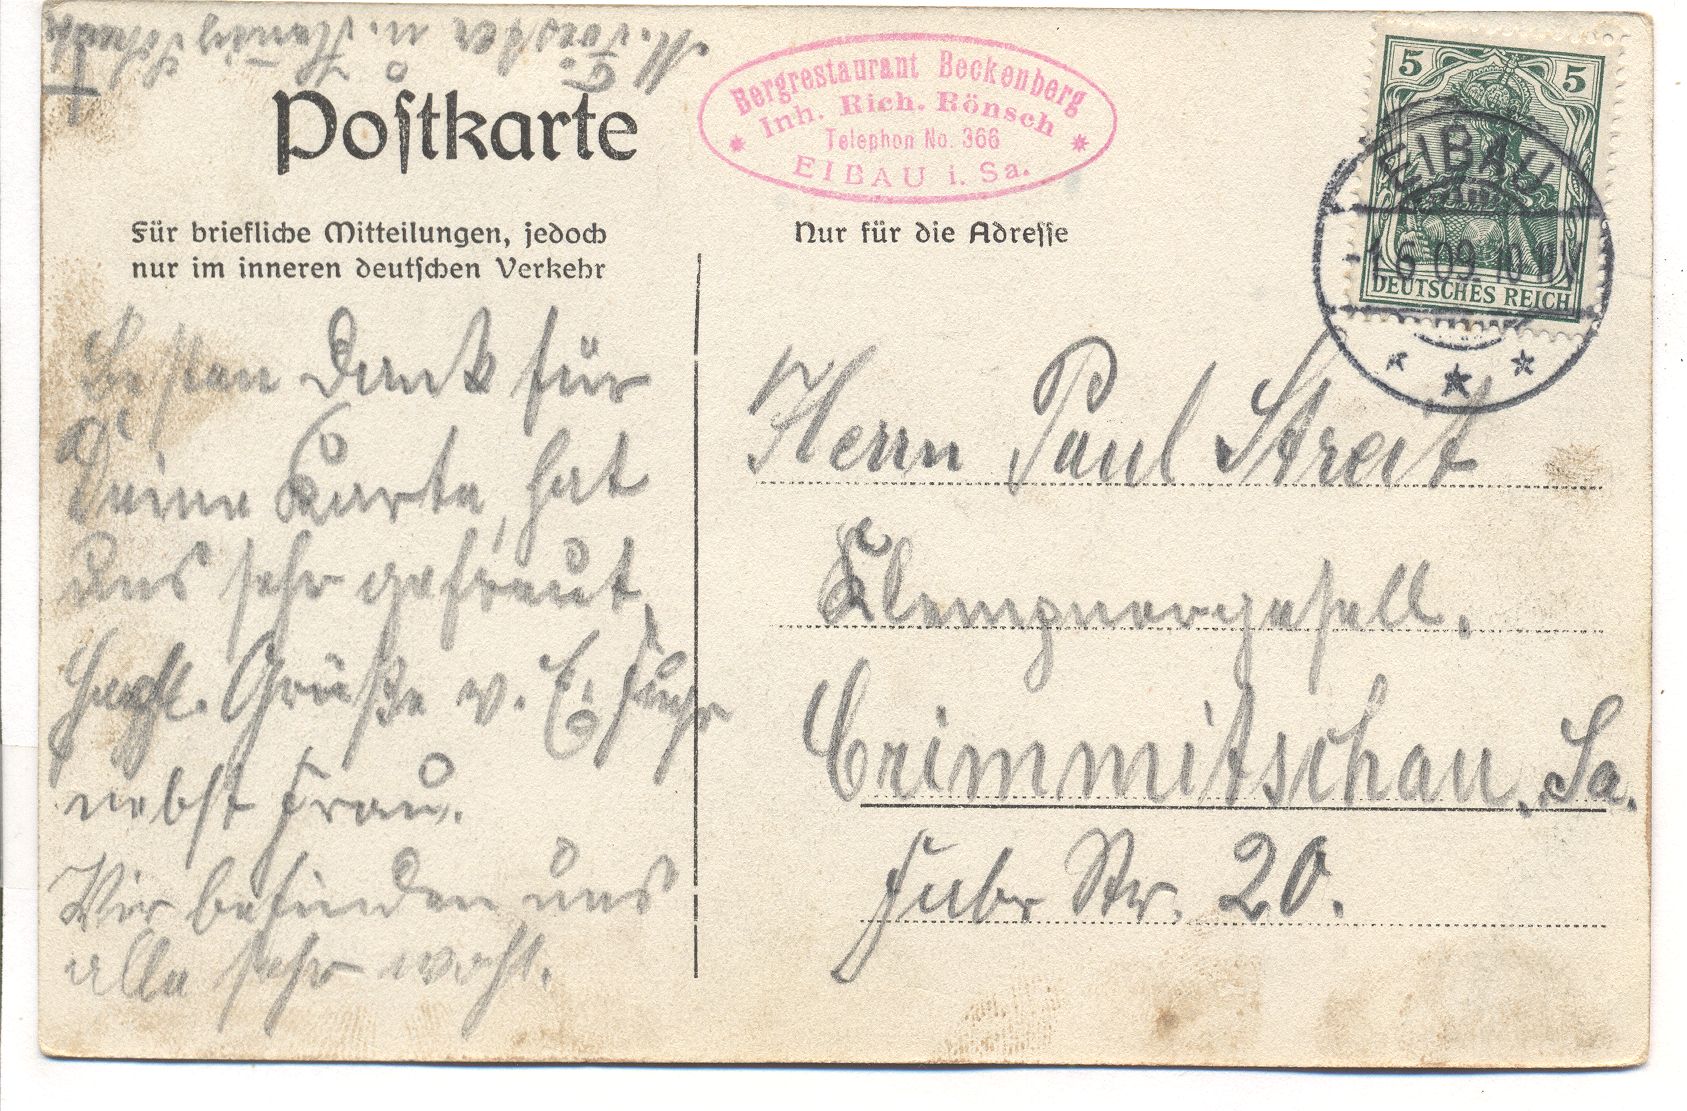 Postkarte
Für briefliche Mitteilungen, jedoch
nur im inneren deutschen Verkehr
Besten Dank für
Deine Karte, hat
uns sehr gefreut,
Herzl. Grüße v. E. Fuhr
nebst Frau.
Wir befinden uns
alle sehr wohl.
Bergrestaurant Beckenberg
Inh. Rich. Rönsch
Telephon No. 366
EIBAU i. Sa.
Nur für die Adresse
5 5
DEUTSCHES REICH
EIBAU
1.6.09. 10
Herrn Paul Streit
Klempnergesell.
Crimmitschau, Sa.
Str. 20.